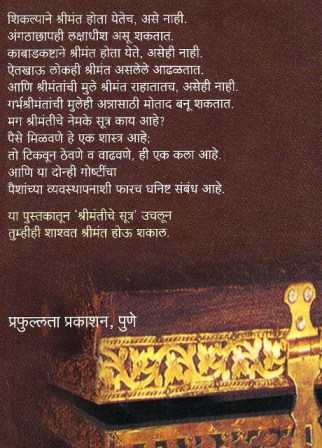 शिकल्याने श्रीमंत होता येतेच, असे नाही.
अंगठाछापही लक्षाधीश असू शकतात.
काबाडकष्टाने श्रीमंत होता येते, असेही नाही.
ऐतखाऊ लोकही श्रीमंत असलेले आढळतात.
आणि श्रीमंतांची मुले श्रीमंत राहातातच, असेही नाही.
गर्भश्रीमंतांची मुलेही अन्नासाठी मोताद बनू शकतात.
मग श्रीमंतीचे नेमके सूत्र काय आहे?
पैसे मिळवणे हे एक शास्त्र आहे;
तो टिकवून ठेवणे व वाढवणे, ही एक कला आहे.
आणि या दोन्ही गोष्टींचा
पैशांच्या व्यवस्थापनाशी फारच घनिष्ट संबंध आहे.
या पुस्तकातून 'श्रीमंतीचे सूत्र' उचलून
तुम्हीही शाश्वत श्रीमंत होऊ शकाल.
प्रफुल्लता प्रकाशन, पुणे